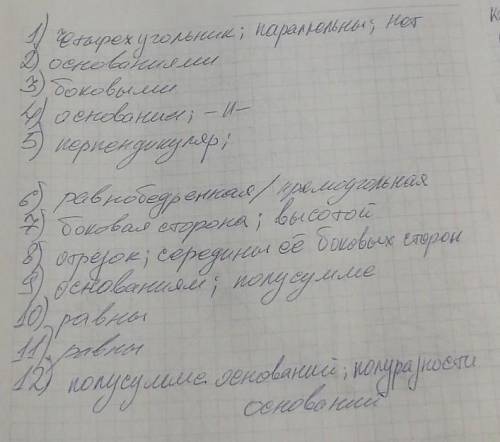 1) Четырехугольник; параллельны; нет
2) основаниями
3) боковыми
4) основании; -//-
5) перпендикуляр;
6) равнобедренная/прямоугольная
7) боковая сторона; высотой
8) отрезок; середины её боковых сторон
9) основаниям; полусумме
10) равны
11) равны
12) полусумме оснований; полуразности
оснований